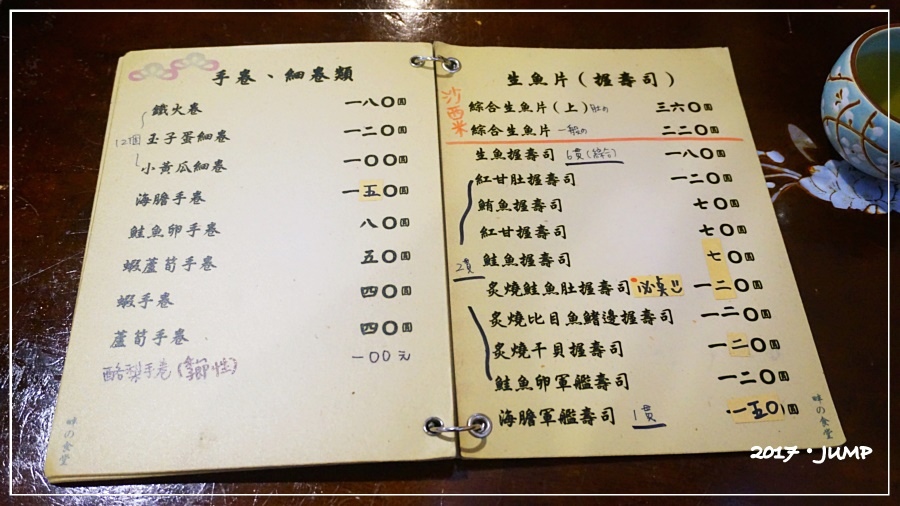 手卷、細卷類
鐵火卷 一八〇圓
12個 玉子蛋細卷 一二〇圓
小黃瓜細卷 一〇〇圓
海膽手卷 一五〇圓
鮭魚卵手卷 八〇圓
蝦蘆筍手卷 五〇圓
蝦手卷 四〇圓
蘆筍手卷 四〇圓
酪梨手卷(季節性) 一〇〇元
畔の食堂
生魚片(握壽司)
沙西米
綜合生魚片(上)肚の 三六〇圓
綜合生魚片 一般の 二二〇圓
生魚握壽司 6貫(綜合) 一八〇圓
紅甘肚握壽司 一二〇圓
鮪魚握壽司 七〇圓
紅甘握壽司 七〇圓
2貫 鮭魚握壽司 七〇圓
炙燒鮭魚肚握壽司 必點 一二〇圓
炙燒比目魚鰭邊握壽司 一二〇圓
炙燒干貝握壽司 一二〇圓
鮭魚卵軍艦壽司 一二〇圓
海膽軍艦壽司 1貫 一五〇圓
畔の食堂
2017·JUMP